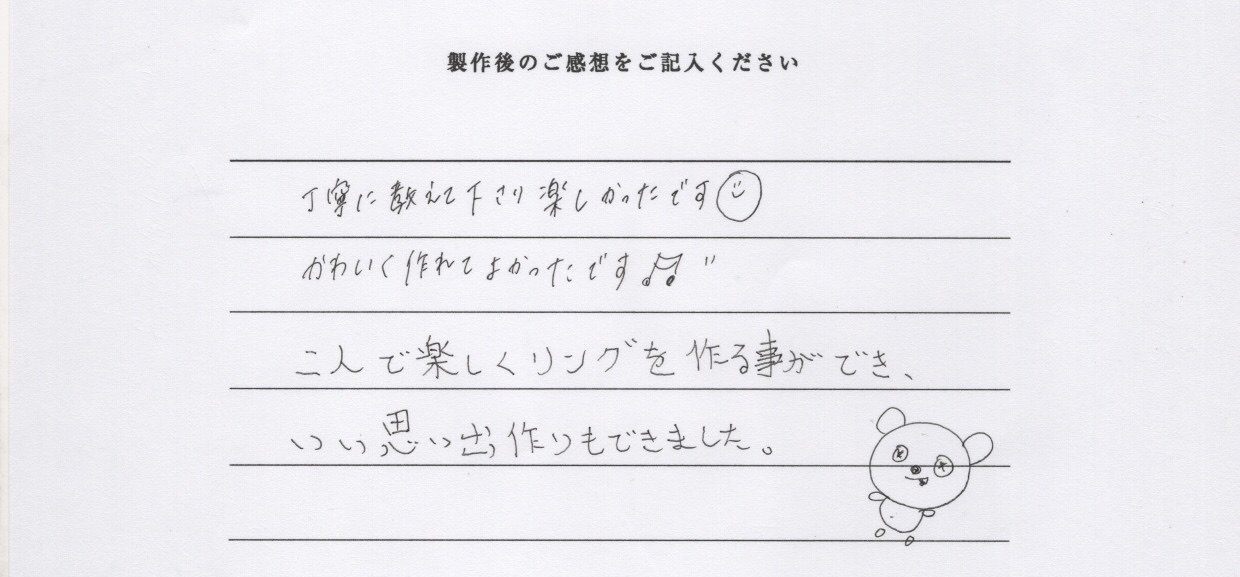 製作後のご感想をご記入ください
丁寧に教えて下さり楽しかったです
かわいく作れてよかったです♬"
二人で楽しくリングを作る事ができ、
いい思い出作りもできました。